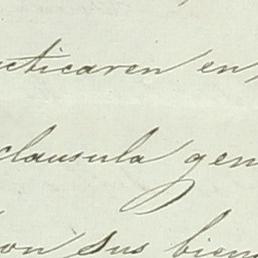 cticaren en
clausula gen
con sus bien